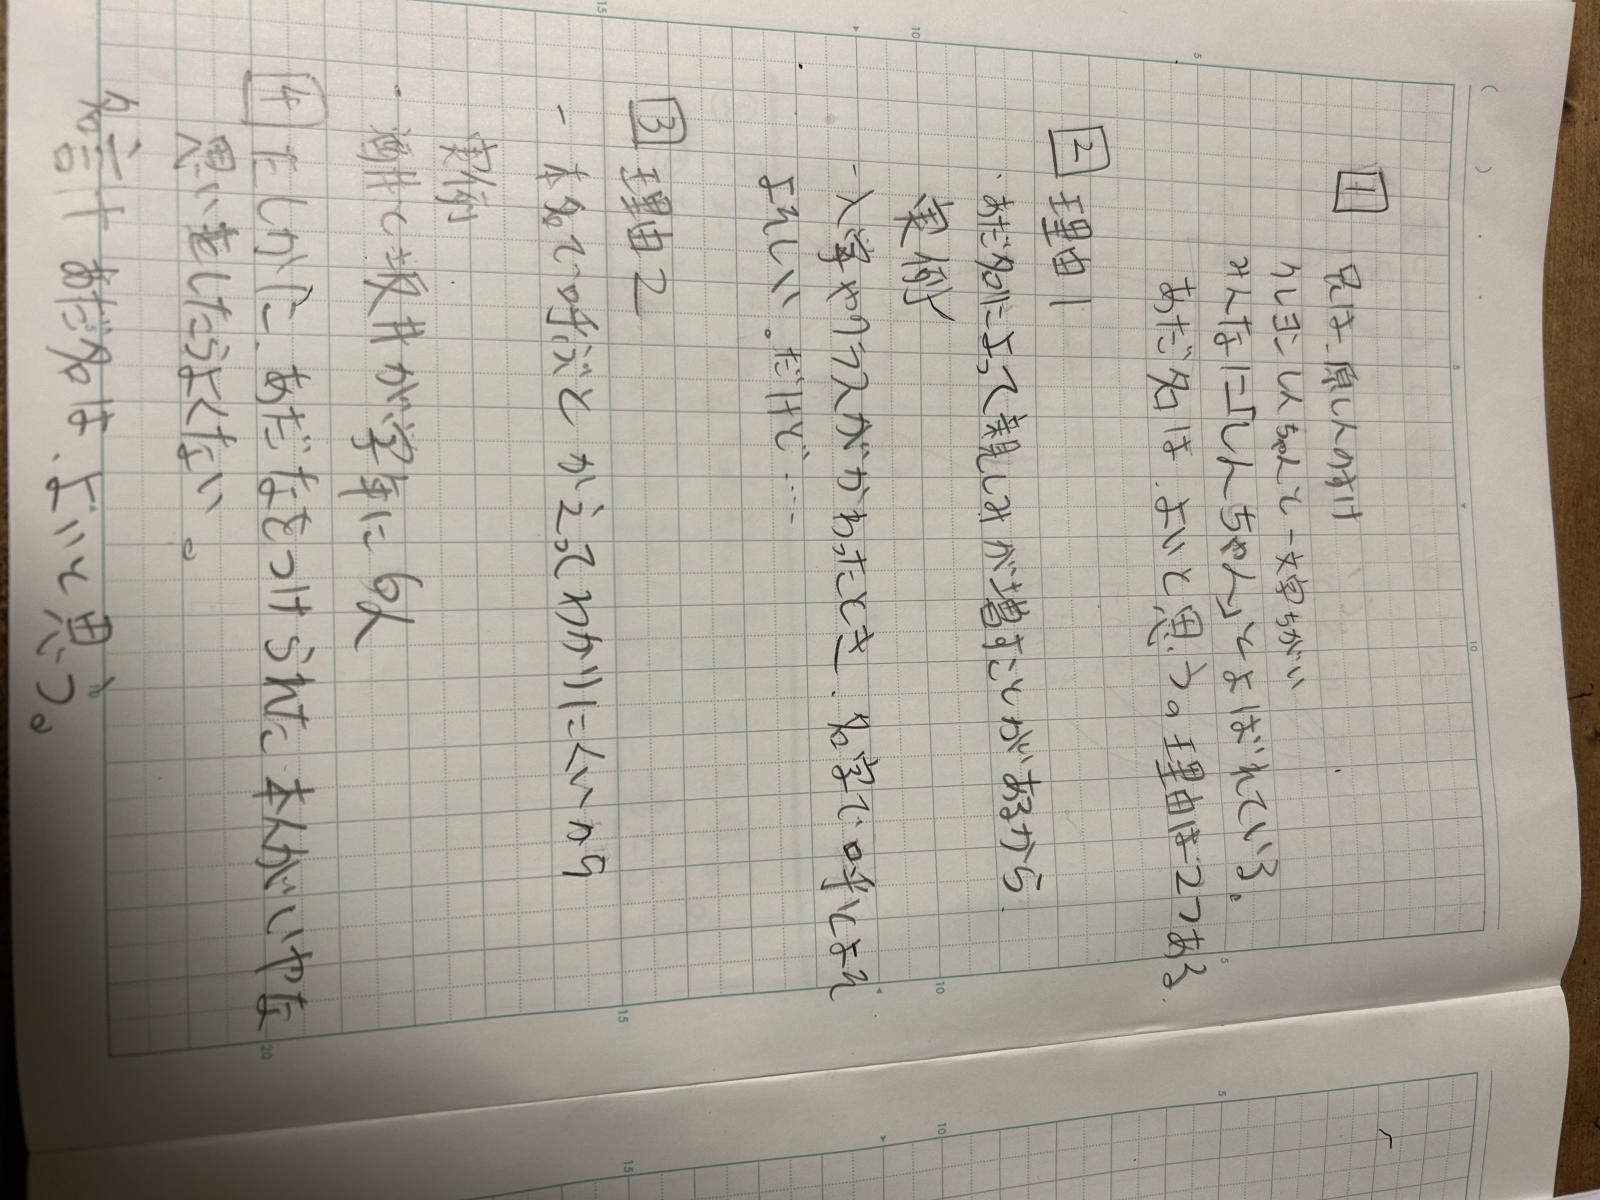 1
兄は、原しんのすけ
クレヨンしんちゃんと一文字ちがい
みんなに「しんちゃん」とよばれている。
あだ名は、よいと思う。理由は2つある.
2 理由1
・あだ名によって親しみが増すことがあるから.
実例
・入学やクラスがかわったとき、名字で呼ぶとよそ
よそしい。だけど…
3 理由2
- 本名で呼ぶとかえってわかりにくいから
実例
・ と坂井が学年に6人
4 たしかに、あだなをつけられた本人がいやな
思いをしたらよくない。
あだ名は、よいと思う。